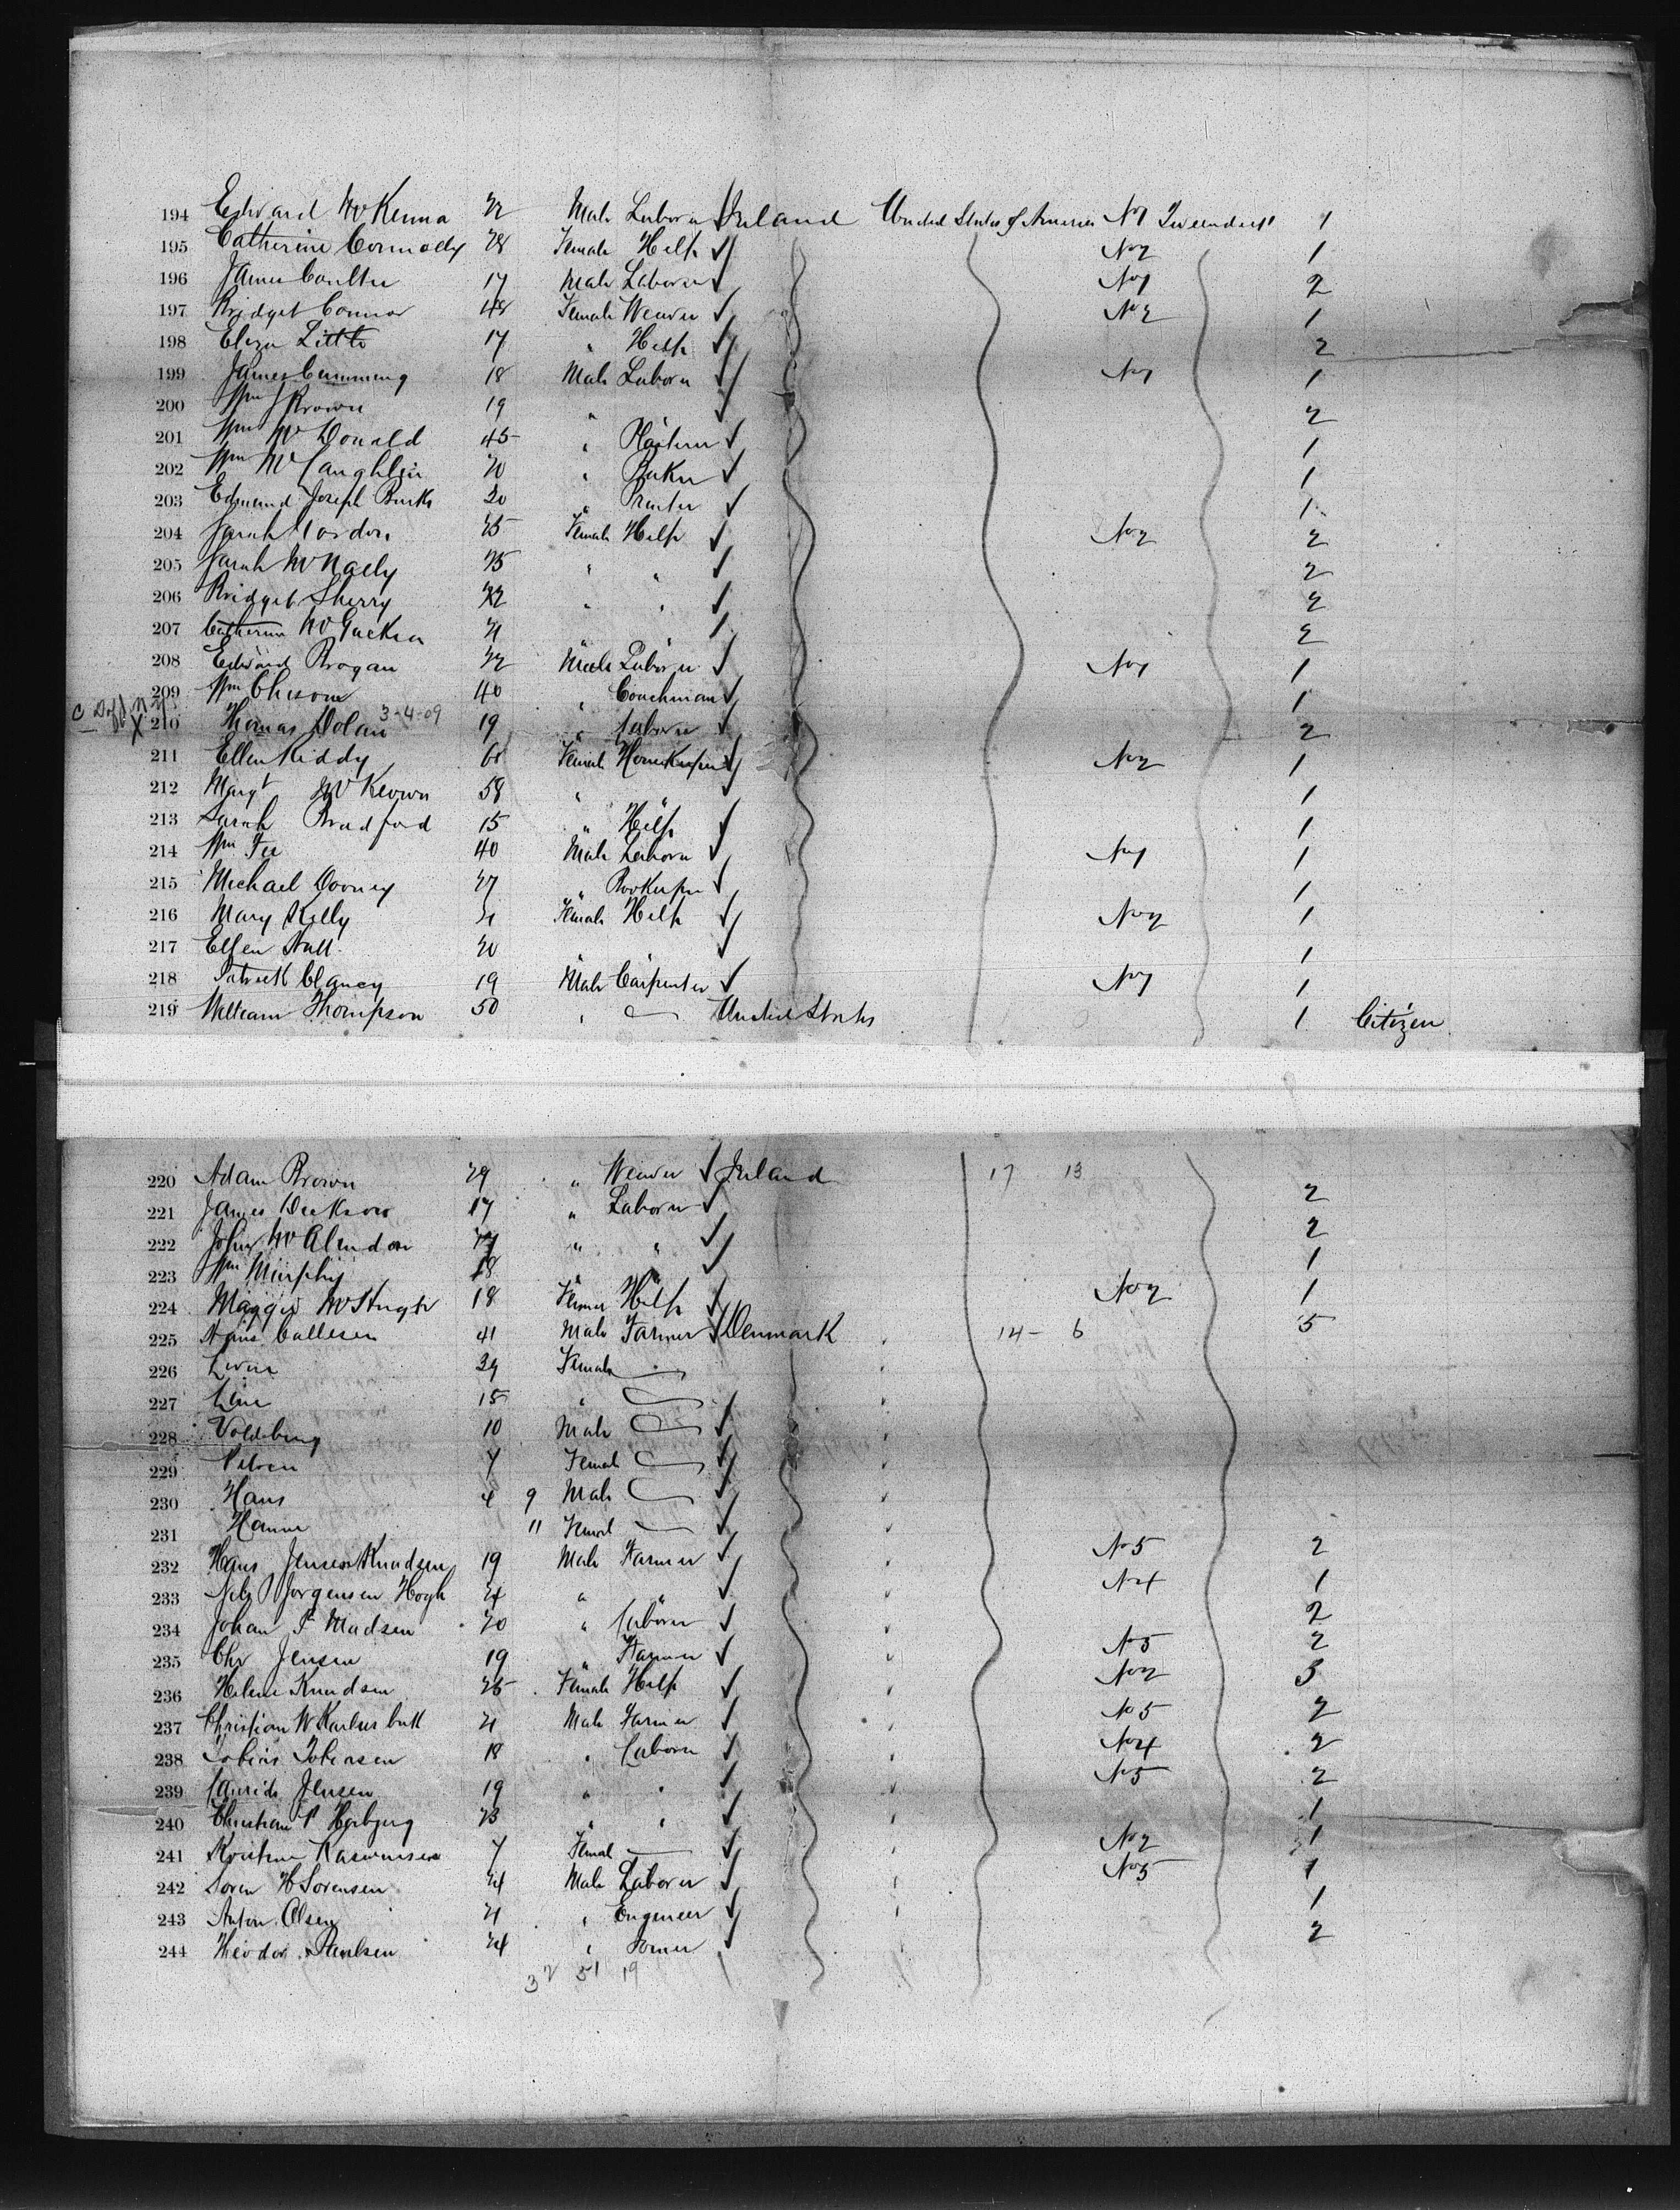 194 Edward McKenna 22 Male Laborer Ireland United States of America No 1
195 Catherine Connolly 28 Female Help No 2 1
196 James Coulter 17 Male Laborer No 1 2
197 Bridget Connor 48 Female Weaver No 2 1
198 Eliza Little 17 " Help 2
199 James Cumming 18 Male Laborer No 1 1
200 Wm J Brown 19 " 2
201 Wm McDonald 45 " 1
202 Wm McLaughlin 20 " Baker 1
203 Edmund Joseph Burke 20 " Printer 1
204 Sarah Gordon 25 Female Help No 2 2
205 Sarah McNally 25 " " 2
206 Bridget Sherry 22 " " 2
207 Catherine 21 2
208 Edward Brogan 22 Male Laborer No 1 1
209 Wm Chisom 40 " Coachman 1
C X 210 Thomas Dolan 3-4-09 19 " Laborer 2
211 Ellen Kiddy Female Housekeeper No 2 1
212 Margt McKeown 58 " 1
213 Sarah Bradford 15 " Help 1
214 Wm Fee 40 Male Laborer No 1 1
215 Michael Dooney 27 " Bookeeper 1
216 Mary Kelly 21 Female Help No 2 1
217 Ellen Hall 20 1
218 Patrick Clancy 19 Male Carpenter No 1 1
219 William Thompson 50 " United States 1 Citizen
220 Adam Brown 29 " Weaver Ireland 17 13 2
221 James Dickson 17 " Laborer 2
222 John " " 1
223 Wm Murphy 18 " " 1
224 Maggie McHugh 18 Female Help No 2 1
225 Hans Callesen 41 Male Farmer Denmark 14 - 6 5
226 39 Female
227 15 "
228 10 Male
229 7 Female
230 Hans 4 9 Male
231 Hanne 11 Female
232 Hans Jensen Knudsen 19 Male Farmer No 5 2
233 Nels Jorgensen Hogh 24 " " No 4 1
234 Johan P Madsen 20 " Laborer 2
235 Chr Jensen 19 " Farmer No 5 2
236 Helene Knudsen 25 Female Help No 2 3
237 Christian 21 Male Farmer No 5 2
238 Tobias Tobiasen 18 " Laborer No 4 2
239 Laurids Jensen 19 " " No 5 2
240 Christian P 23 " " 1
241 Kristine Rasmussen 7 Female No 2 1
242 Soren H Sorensen 24 Male Laborer No 5 1
243 Anton Olsen 21 " Engineer 1
244 Theodor Paulsen 24 " 2
32 51 19